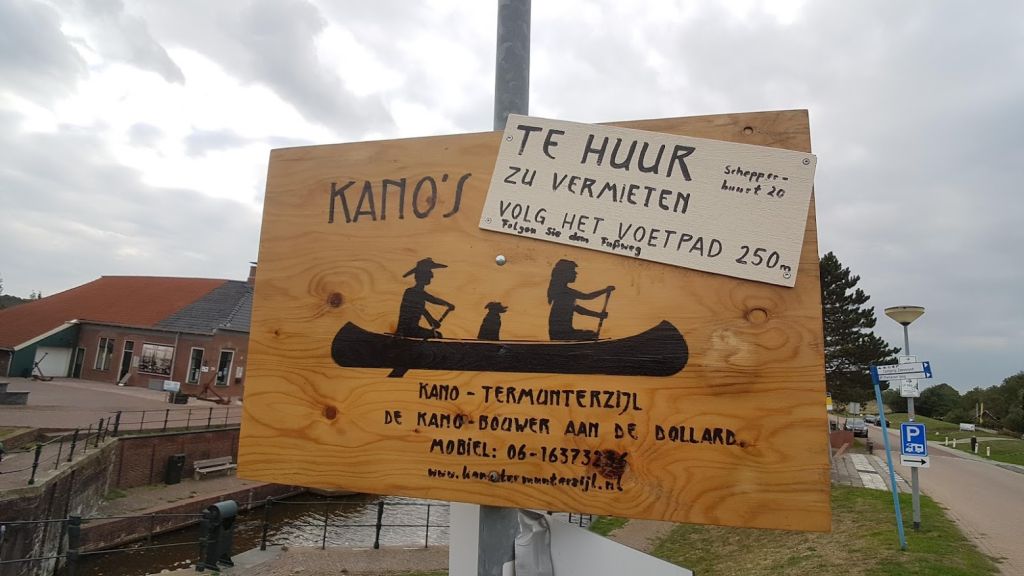 KANO'S
TE HUUR
ZU VERMIETEN
Schepper-
buurt 20
VOLG HET VOETPAD 250m
Folgen Sie dem Fußweg
KANO - TERMUNTERZIJL
DE KANO-BOUWER AAN DE DOLLARD.
MOBIEL: 06-16373
www.kanotermunterzijl.nl
P